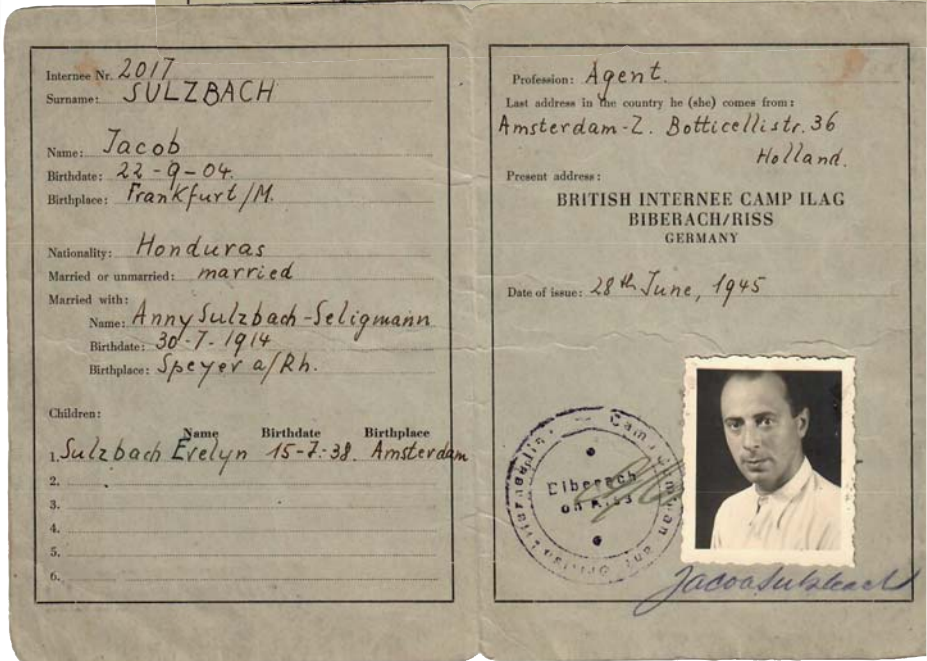 Internee Nr. 2017
Surname: SULZBACH
Name: Jacob
Birthdate: 22-9-04.
Birthplace: Frankfurt/M.
Nationality: Honduras
Married or unmarried: married
Married with:
Name: Anny Sulzbach-Seligmann
Birthdate: 30-7-1914
Birthplace: Speyer a/Rh.
Children:
Name Birthdate Birthplace
1. Sulzbach Evelyn 15-7-38. Amsterdam
2.
3.
4.
5.
6.
Profession: Agent.
Last address in the country he (she) comes from:
Amsterdam-Z. Botticellistr. 36
Holland.
Present address:
BRITISH INTERNEE CAMP ILAG
BIBERACH/RISS
GERMANY
Date of issue: 28th June, 1945
Camp
Biberach
on Riss
Jacob Sulzbach